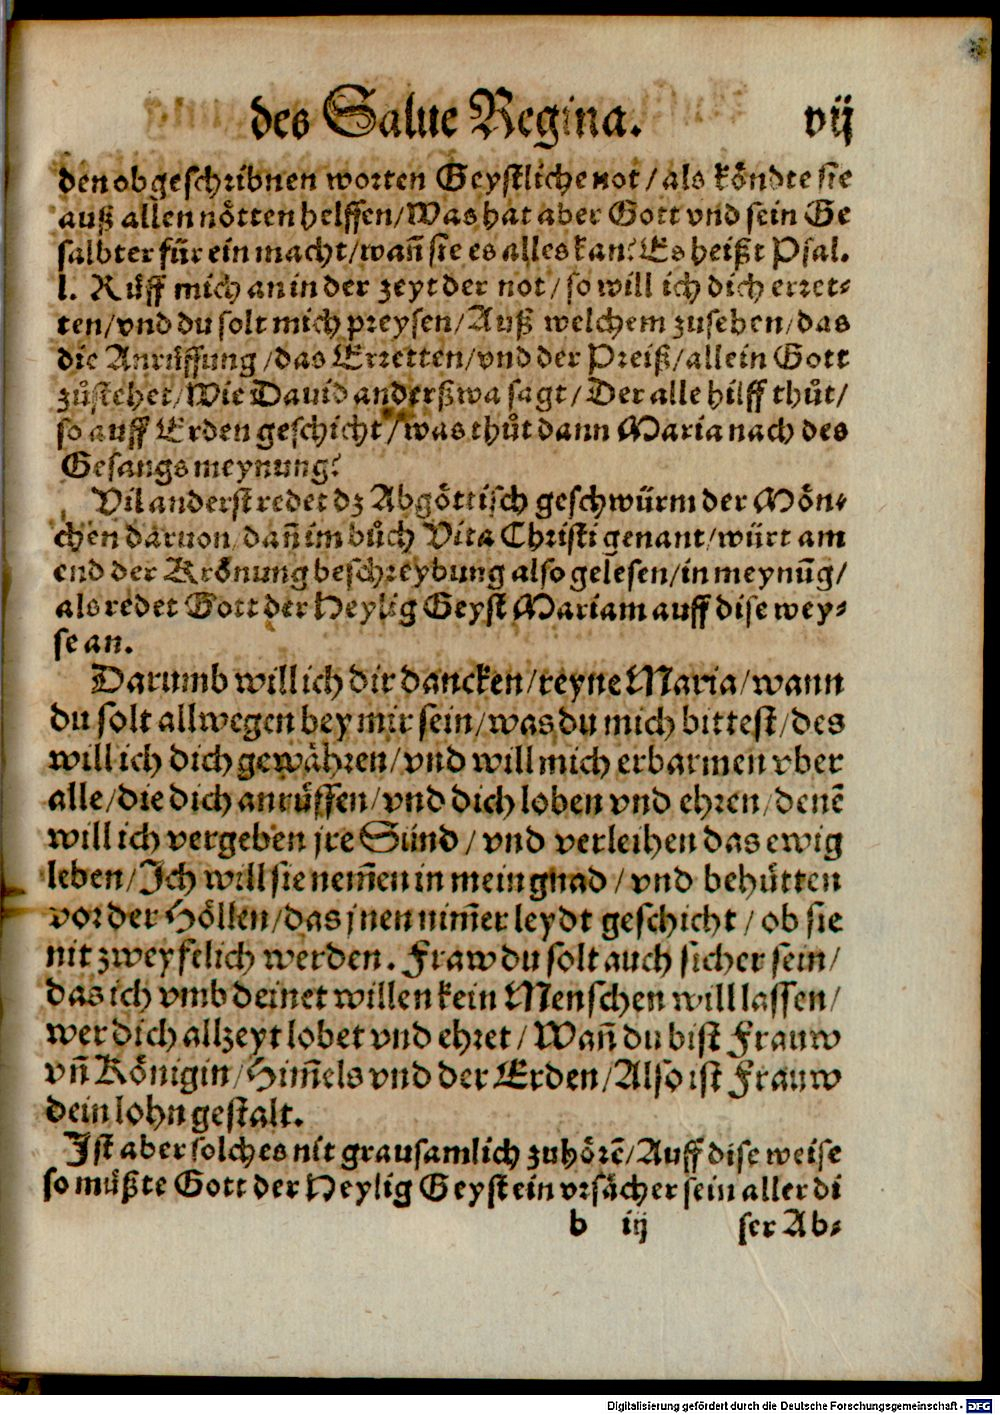 des Salue Regina. vij
den obgeschribnen worten Geystliche not / als köndte sie
auß allen nötten helffen / Was hat aber Gott vnd sein Ge
salbter für ein macht / wañ sie es alles kan? Es heißt Psal.
l. Rüff mich an in der zeyt der not / so will ich dich erret⸗
ten / vnd du solt mich preysen / Auß welchem zusehen / das
die Anrüffung / das Erretten / vnd der Preiß / allein Gott
zůstehet / Wie Dauid anderßwa sagt / Der alle hilff thůt /
so auff Erden geschicht / was thůt dann Maria nach des
Gesangs meynung?
Vil anderst redet dz Abgöttisch geschwürm der Mön⸗
chen daruon / dañ im bůch Vita Christi genant / würt am
end der Krönung beschreybung also gelesen / in meynūg /
als redet Gott der Heylig Geyst Mariam auff dise wey⸗
se an.
Darumb will ich dir dancken / reyne Maria / wann
du solt allwegen bey mir sein / was du mich bittest / des
will ich dich gewähren / vnd will mich erbarmen vber
alle / die dich anrüffen / vnd dich loben vnd ehren / denē
will ich vergeben jre Sünd / vnd verleihen das ewig
leben / Ich will sie nem̄en in mein gnad / vnd behütten
vor der Höllen / das jnen nim̄er leydt geschicht / ob sie
nit zweyfelich werden. Fraw du solt auch sicher sein /
das ich vmb deinet willen kein Menschen will lassen /
wer dich allzeyt lobet vnd ehret / Wañ du bist Frauw
vñ Königin / Him̄els vnd der Erden / Also ist Frauw
dein lohn gestalt.
Ist aber solches nit grausamlich zuhörē / Auff dise weise
so müßte Gott der Heylig Geyst ein vrsächer sein aller di
b iij ser Ab⸗
Digitalisierung gefördert durch die Deutsche Forschungsgemeinschaft - DFG